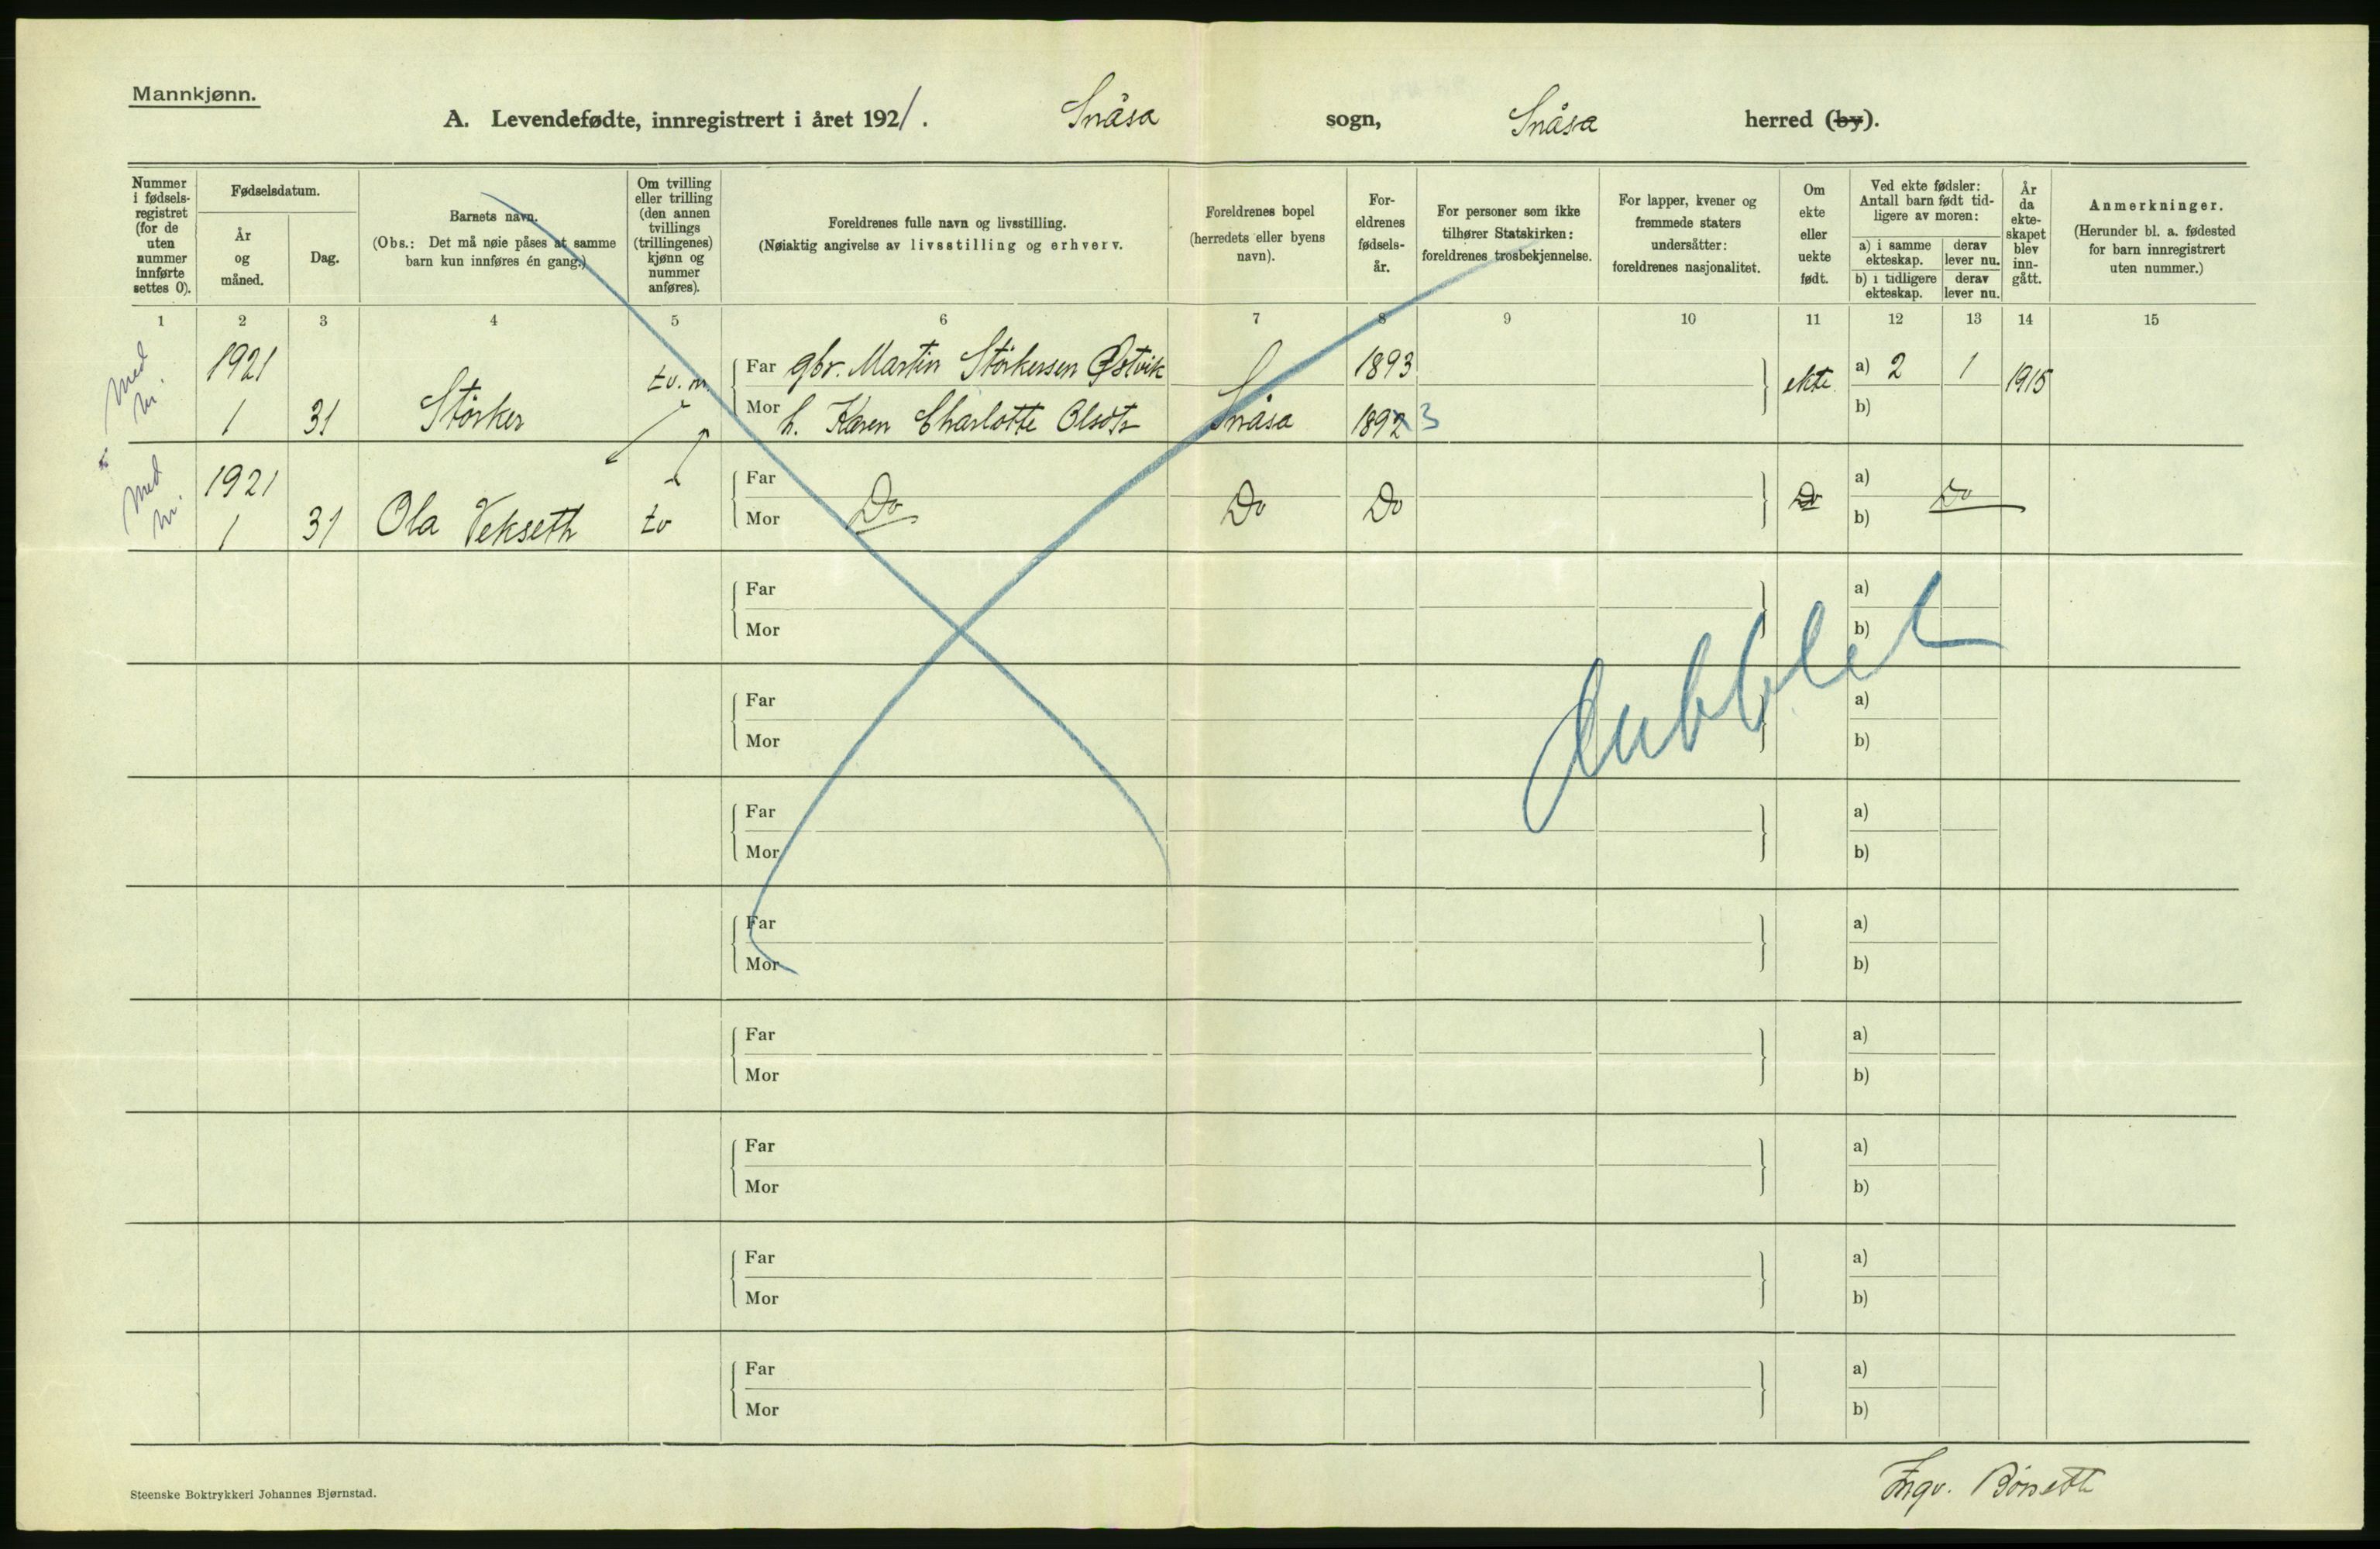 Mannkjønn.
A. Levendefødte, innregistrert i året 1921. Snåsa sogn, Snåsa herred (by).
Nummer i fødsels-registret (for de uten nummer innførte settes 0).
Fødselsdatum.
År og måned.
Dag.
Barnets navn.
(Obs.: Det må nøie påses at samme barn kun innføres én gang.)
Om tvilling eller trilling (den annen tvillings (trillingenes) kjønn og nummer anføres).
Foreldrenes fulle navn og livsstilling.
(Nøiaktig angivelse av livsstilling og erhverv.
Foreldrenes bopel (herredets eller byens navn).
For-eldrenes fødsels-år.
For personer som ikke tilhører Statskirken: foreldrenes trosbekjennelse.
For lapper, kvener og fremmede staters undersåtter: foreldrenes nasjonalitet.
Om ekte eller uekte født.
Ved ekte fødsler: Antall barn født tid-ligere av moren:
a) i samme ekteskap.
derav lever nu.
b) i tidligere ekteskap.
derav lever nu.
År da ekte-skapet blev inn-gått.
Anmerkninger.
(Herunder bl. a. fødested for barn innregistrert uten nummer.)
1 2 3 4 5 6 7 8 9 10 11 12 13 14 15
med nr.
1921 tv. m Far gbr. Martin Störkersen Østvik 1893 ekte a) 2 1 1915
1 31 Störker Mor h. Karen Charlotte Olsdtr Snåsa 1892 3 b)
med nr.
1921 Far Do Do Do Do a) Do
1 31 Ola Vekseth tv Mor b)
Far a)
Mor b)
dubblet
Far a)
Mor b)
Far a)
Mor b)
Far a)
Mor b)
Far a)
Mor b)
Far a)
Mor b)
Far a)
Mor b)
Far a)
Mor b)
Steenske Boktrykkeri Johannes Bjørnstad.
Ingv.